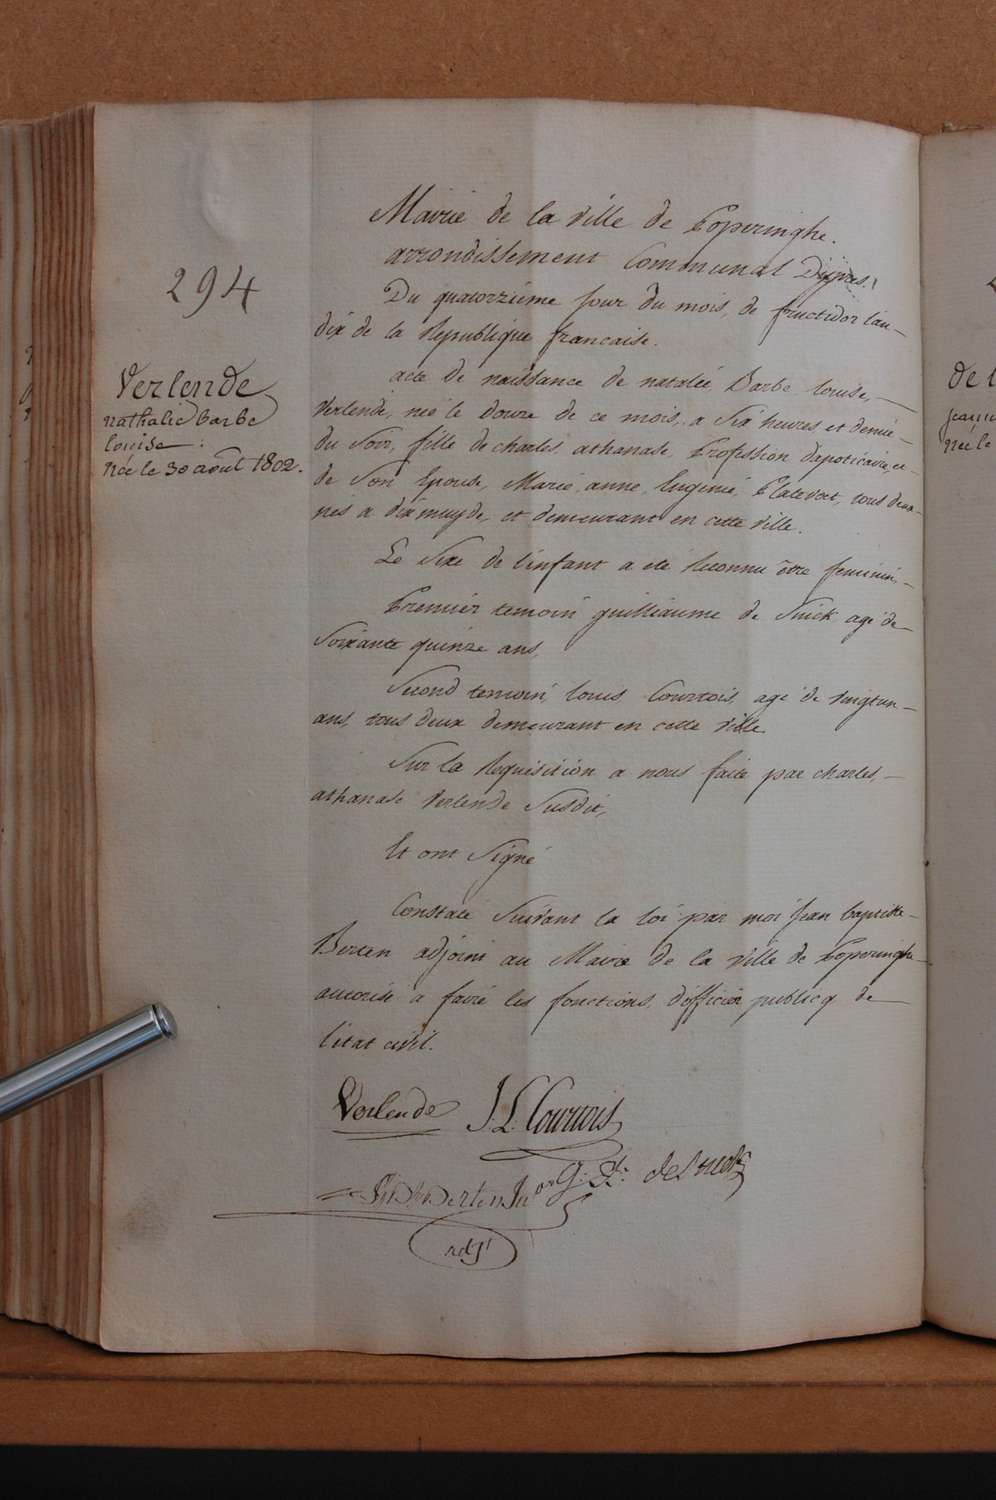 Mairie de la ville de Poperinghe.
arrondissement Communal D'ijpres.
294
Du quatorzieme jour du mois, de fructidor l'an
dix de la Republique francaise.
Verlende
nathalie barbe
louise
Née le 30 août 1802.
acte de naissance de natalie, Barbe, louise,
Verlende, née le douze de ce mois, a Six heures et demie
du Soir, fille de charles athanase, Profession d'apoticaire, et
de Son Epouse, Marie, anne, Eugenie, Platevoet, tous deux
nés a dixmuyde, et demeurant en cette ville.
Le Sixe de l'enfant a eté Reconnu être feminin,
Premier temoin guilliaume de Snick agé de
Soixante quinze ans,
Second temoin, louis Courtois, agé de vingtun
ans, tous deux demeurant en cette ville.
Sur la Requisition a nous faite par charles,
athanase Verlende Susdit,
Et ont Signé
Constaté Suivant la loi par moi jean baptiste
Berten adjoint au Maire de la ville de Poperinghe
autorisé a faire les fonctions, d'officier publicq de
l'état civil.
Verlende J. L. Courtois
Berten
adjt
de
jeann
Née le